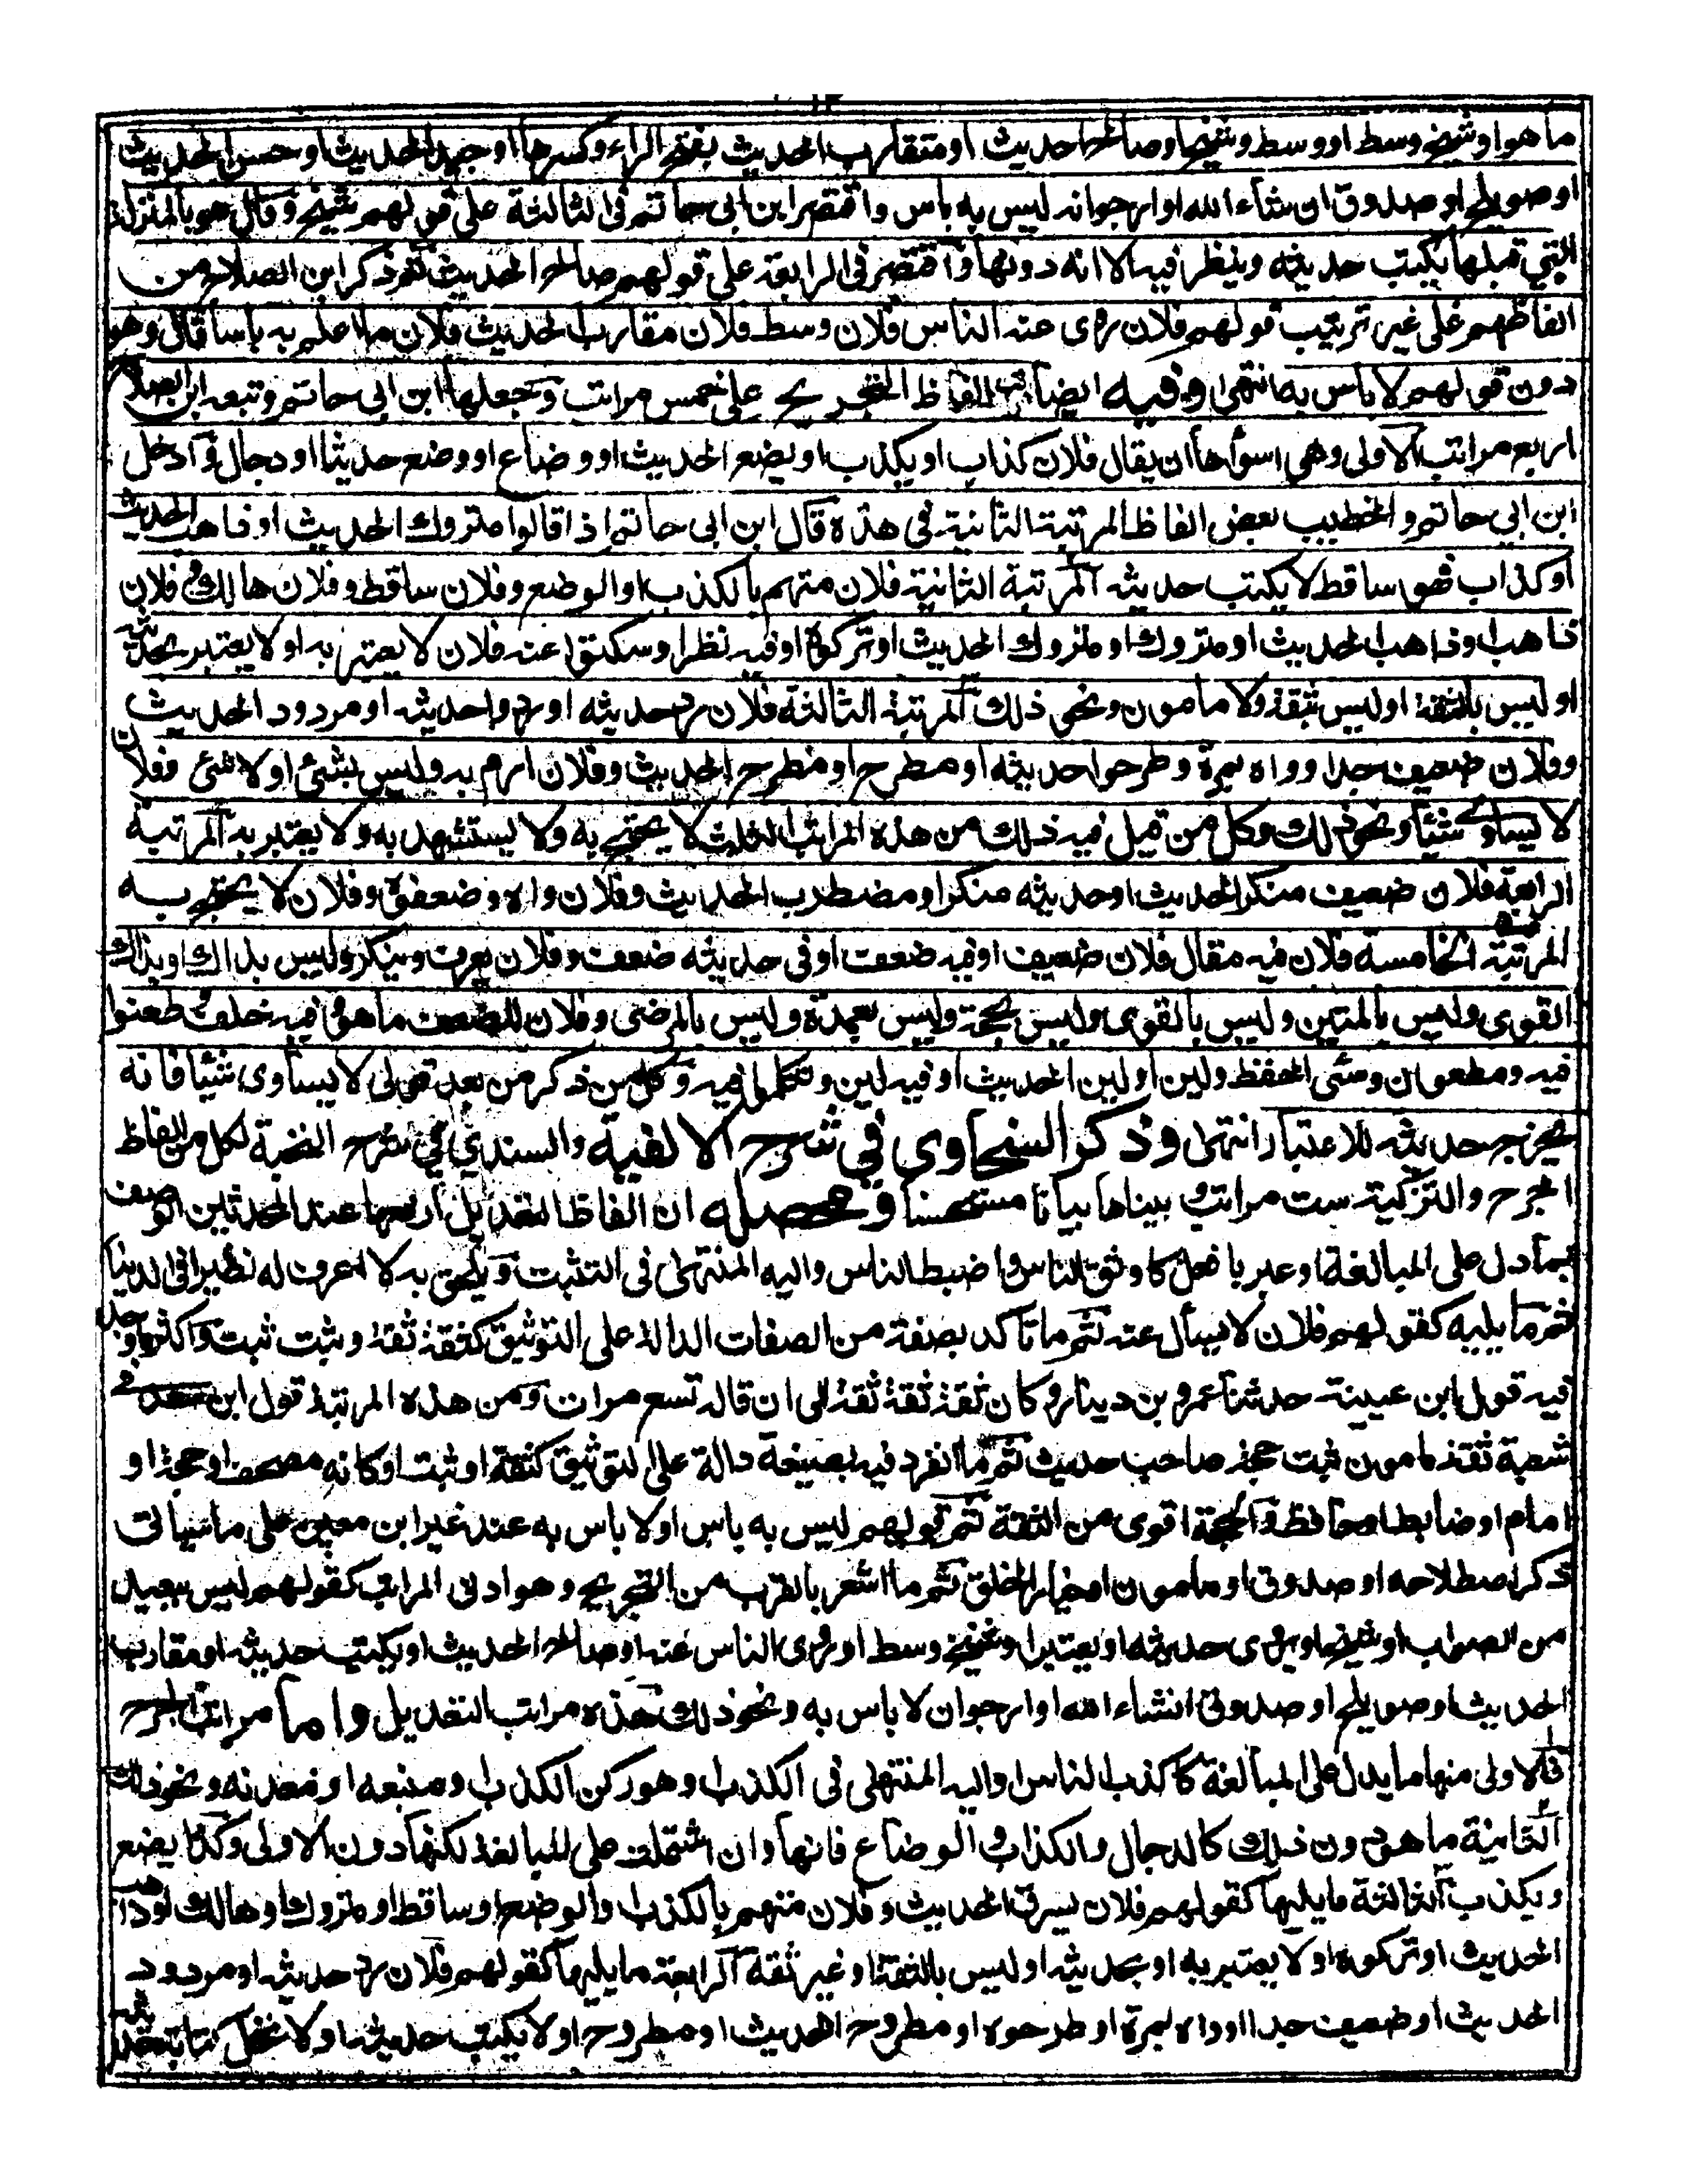 ١٢
ما هو او شيخ وسط او وسط وشيخ او صالح الحديث او متقارب الحديث بفتح الراء وكسرها او جيد الحديث او حسن الحديث
او صويلح او صدوق ان شاء الله او ارجو انه ليس به باس واقتصر ابن ابى حاتم فى الثالثة على قولهم شيخ وقال هو بالمنزلة
التي قبلها يكتب حديثه وينظر فيه الا انه دونها واقتصر فى الرابعة على قولهم صالح الحديث ثم ذكر ابن الصلاح من
الفاظهم على غير ترتيب قولهم فلان روى عنه الناس فلان وسط فلان مقارب الحديث فلان ما اعلم به باسا قال وهو
دون قولهم لا باس به انتهى وفيه ايضا الفاظ التجريح على خمس مراتب وجعلها ابن ابى حاتم وتبعه ابن الصلاح
اربع مراتب الاولى وهى اسوأها ان يقال فلان كذاب او يكذب او يضع الحديث او وضاع او وضع حديثا او دجال وادخل
ابن ابي حاتم والخطيب بعض الفاظ المرتبة الثانية فى هذه قال ابن ابى حاتم اذا قالوا متروك الحديث او ذاهب الحديث
او كذاب فهو ساقط لا يكتب حديثه المرتبة الثانية فلان متهم بالكذب او الوضع وفلان ساقط وفلان هالك وفلان
ذاهب او ذاهب الحديث او متروك او متروك الحديث او تركوه او فيه نظر او سكتوا عنه فلان لا يعتبر به او لا يعتبر بحديثه
او ليس بالثقة او ليس بثقة ولا مامون ونحو ذلك المرتبة الثالثة فلان رد حديثه او ردوا حديثه او مردود الحديث
وفلان ضعيف جدا وواه بمرة وطرحوا حديثه او مطرح او مطرح الحديث وفلان ارم به وليس بشئ او لا شئ وفلان
لا يساوي شيئا ونحو ذلك وكل من قيل فيه ذلك من هذه المراتب الثلث لا يحتج به ولا يستشهد به ولا يعتبر به المرتبة
الرابعة فلان ضعيف منكر الحديث او حديثه منكر او مضطرب الحديث وفلان واه وضعفوه وفلان لا يحتج به
المرتبة الخامسة فلان فيه مقال فلان ضعيف او فيه ضعف او فى حديثه ضعف وفلان يعرف وينكر وليس بذاك او بذاك
القوى وليس بالمتين وليس بالقوى وليس بحجة وليس بعمدة وليس بالمرضى وفلان للضعف ما هو فيه خلف طعنوا
فيه ومطعون وسئى الحفظ ولين او لين الحديث او فيه لين وتكلموا فيه وكل من ذكر من بعد قولى لا يساوى شيئا فانه
يخرج حديثه للاعتبار انتهى وذكر السخاوى في شرح الالفية والسندي في شرح النخبة لكل من الفاظ
الجرح والتزكية ست مراتب وبيناها بيانا مستحسنا ومحصله ان الفاظ التعديل ارفعها عند المحدثين الوصف
بما دل على المبالغة او عبر بافعل كاوثق الناس واضبط الناس واليه المنتهى فى التثبت ويلحق به لا اعرف له نظيرا فى الدنيا
ثم ما يليه كقولهم فلان لا يسأل عنه ثم ما تأكد بصفة من الصفات الدالة على التوثيق كثقة ثقة وثبت ثبت واكثر ما وجد
فيه قول ابن عيينة حدثنا عمرو بن دينار وكان ثقة ثقة ثقة الى ان قاله تسع مرات ومن هذه المرتبة قول ابن سعد فى
شعبة ثقة مامون ثبت حجة صاحب حديث ثم ما انفرد فيه بصيغة دالة على التوثيق كثقة او ثبت او كانه مصحف او حجة او
امام او ضابط او حافظ والحجة اقوى من الثقة ثم قولهم ليس به باس او لا باس به عند غير ابن معين على ما سيأتى
ذكر اصطلاحه او صدوق او مامون او خيار الخلق ثم ما اشعر بالقرب من التجريح وهو ادنى المراتب كقولهم ليس ببعيد
من الصواب او شيخ او يروى حديثه او يعتبر او شيخ وسط او روى الناس عنه او صالح الحديث او يكتب حديثه او مقارب
الحديث او صويلح او صدوق انشاء الله او ارجو ان لا باس به ونحو ذلك هذه مراتب التعديل واما مراتب الجرح
فالاولى منها ما يدل على المبالغة كاكذب الناس او اليه المنتهى فى الكذب او هو ركن الكذب او منبعه او معدنه ونحو ذلك
الثانية ما هو دون ذلك كالدجال والكذاب والوضاع فانها وان اشتملت على المبالغة لكنها دون الاولى وكذا يضع
ويكذب الثالثة ما يليها كقولهم فلان يسرق الحديث وفلان متهم بالكذب او الوضع او ساقط او متروك او هالك او ذاهب
الحديث او تركوه او لا يعتبر به او بحديثه او ليس بالثقة او غير ثقة الرابعة ما يليها كقولهم فلان رد حديثه او مردود
الحديث او ضعيف جدا او واه بمرة او طرحوه او مطروح الحديث او مطروح او لا يكتب حديثه او لا تحل كتابة حديثه